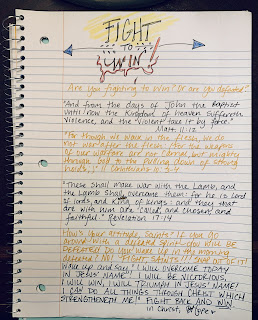 FIGHT
TO
WIN!
Are you fighting to win? Or are you defeated?
"And from the days of John the Baptist
until now the Kingdom of heaven suffereth
violence, and the violent take it by force."
Matt. 11:12
"For though we walk in the flesh, we do
not war after the flesh: (For the weapons
of our warfare are not carnal, but mighty
through God to the pulling down of strong
holds;)" II Corinthians 10:3-4
"These shall make war with the Lamb, and
the Lamb shall overcome them: for he is Lord
of lords, and King of kings: and they that
are with him are called, and chosen, and
faithful." Revelation 17:14
How's your attitude, Saints? If you go
around with a defeated spirit - you WILL BE
DEFEATED. Do you wake up in the morning
defeated? NO! FIGHT, SAINTS!!! SNAP OUT OF IT!
Wake up and say, "I WILL OVERCOME TODAY
IN JESUS' NAME! I WILL BE VICTORIOUS!
I WILL WIN, I WILL TRIUMPH IN JESUS' NAME!
I CAN DO ALL THINGS THROUGH CHRIST WHICH
STRENGTHENETH ME!" FIGHT BACK AND WIN
in Christ,